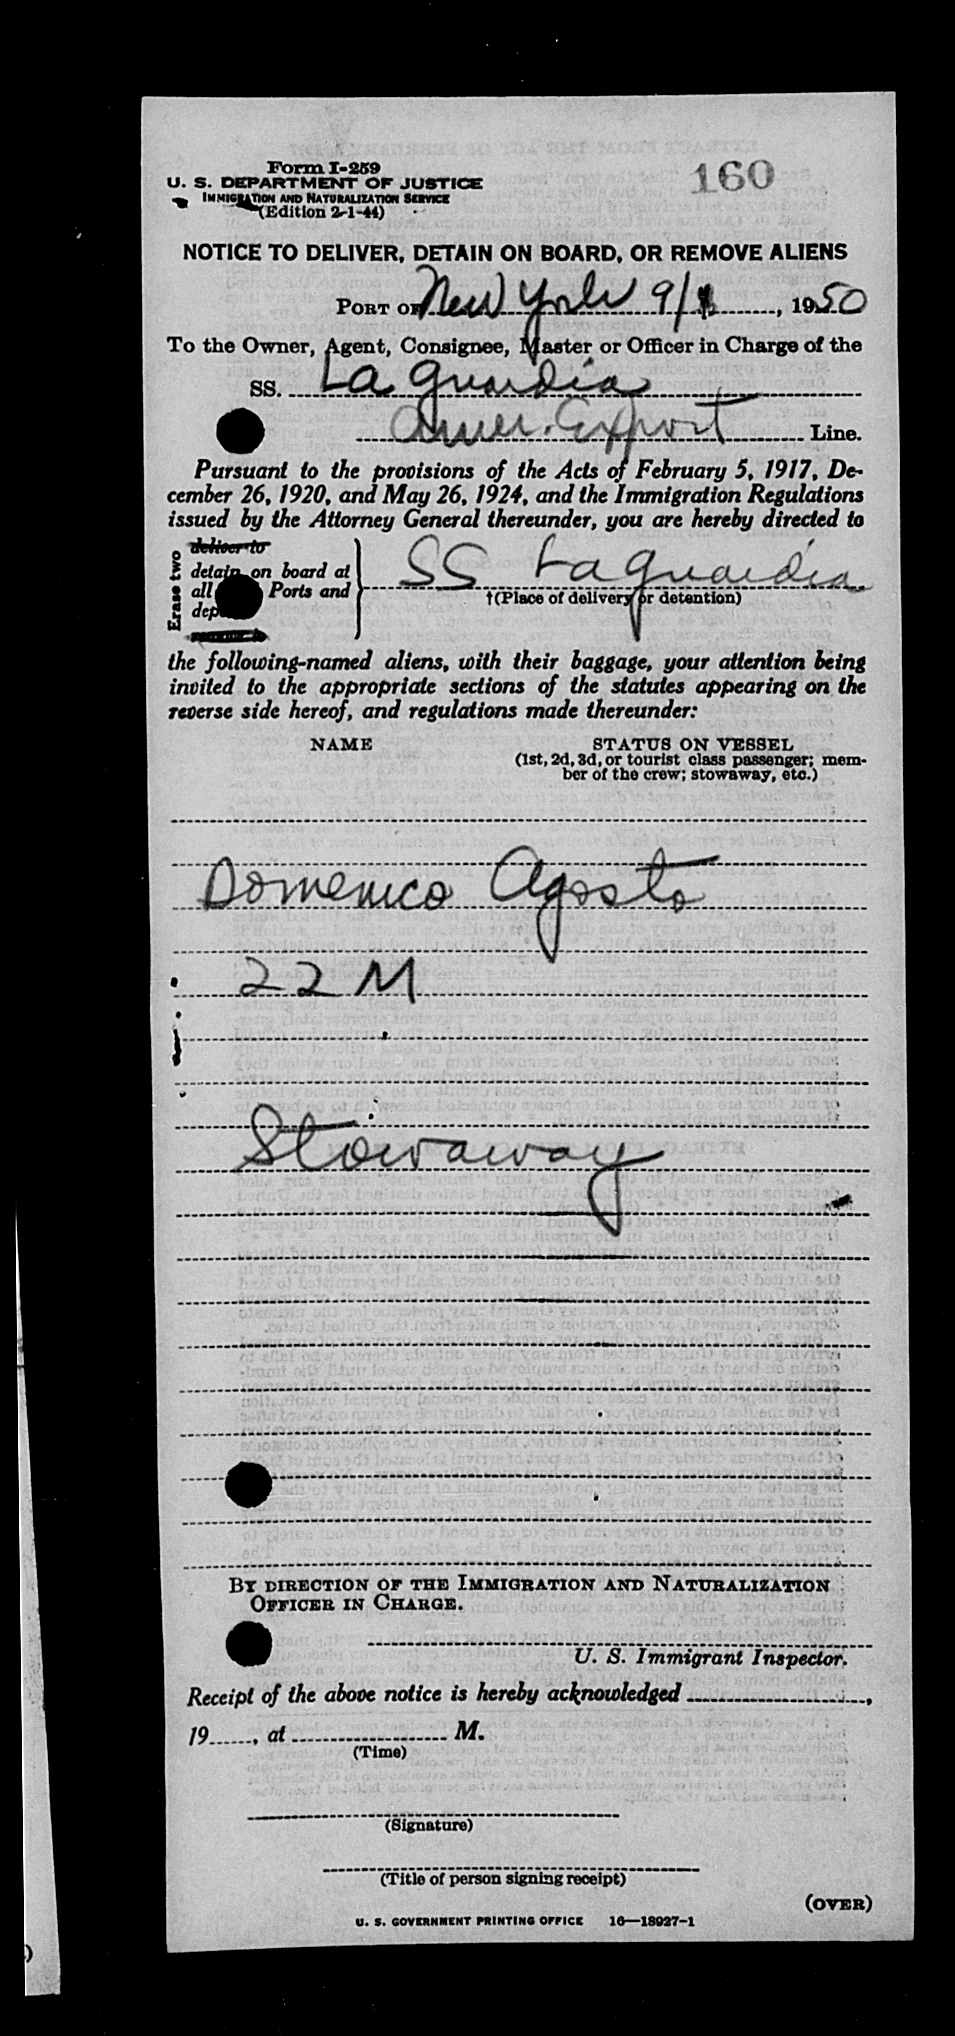 Form I-259
160
U. S. DEPARTMENT OF JUSTICE
IMMIGRATION AND NATURALIZATION SERVICE
(Edition 2-1-44)
NOTICE TO DELIVER, DETAIN ON BOARD, OR REMOVE ALIENS
PORT OF New York 9/, 1950
To the Owner, Agent, Consignee, Master or Officer in Charge of the
SS. La Guardia
Amer. Export Line.
Pursuant to the provisions of the Acts of February 5, 1917, De-
cember 26, 1920, and May 26, 1924, and the Immigration Regulations
issued by the Attorney General thereunder, you are hereby directed to
Erase two
deliver to
detain on board at
all Ports and
SS La Guardia
†(Place of delivery or detention)
the following-named aliens, with their baggage, your attention being
invited to the appropriate sections of the statutes appearing on the
reverse side hereof, and regulations made thereunder:
NAME STATUS ON VESSEL
(1st, 2d, 3d, or tourist class passenger; mem-
ber of the crew; stowaway, etc.)
Domenico Agosto
22 M
Stowaway
BY DIRECTION OF THE IMMIGRATION AND NATURALIZATION
OFFICER IN CHARGE.
U. S. Immigrant Inspector.
Receipt of the above notice is hereby acknowledged ,
19 , at M.
(Time)
(Signature)
(Title of person signing receipt)
(OVER)
U. S. GOVERNMENT PRINTING OFFICE 16—18927-1